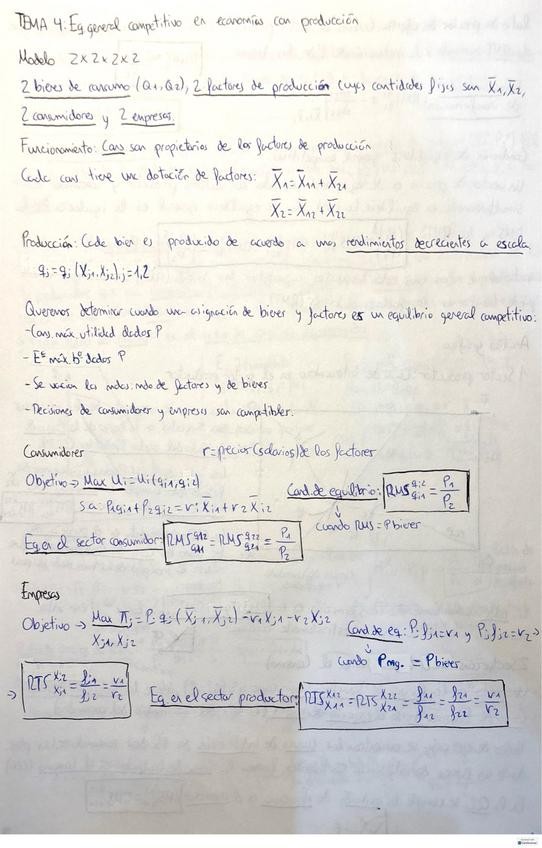 TEMA 4: Eq general competitivo en economías con producción
Modelo 2x2x2x2
2 bienes de consumo (Q1, Q2), 2 factores de producción cuyas cantidades fijas son X̄1, X̄2,
2 consumidores y 2 empresas.
Funcionamiento: Cons son propietarios de los factores de producción
Cada cons tiene una dotación de factores: X̄1 = X̄11 + X̄21
X̄2 = X̄12 + X̄22
Producción: Cada bien es producido de acuerdo a unos rendimientos decrecientes a escala
qj = qj (Xj1, Xj2), j = 1,2
Queremos determinar cuando una asignación de bienes y factores es un equilibrio general competitivo:
- Cons. máx. utilidad dados P
- Eˢ máx. bº dados P
- Se vacían los mdos. mdo de factores y de bienes
- Decisiones de consumidores y empresas son compatibles.
Consumidores r = precios (salarios) de los factores
Objetivo → Max Ui = Ui (qi1, qi2) Cond. de equilibrio: RMS qi2 qi1 = P1/P2
sa: P1qi1 + P2qi2 = r1 X̄i1 + r2 X̄i2 ↓ cuando RMS = Pbienes
Eq en el sector consumidor: RMS q12 q11 = RMS q22 q21 = P1/P2
Empresas
Objetivo → Max πj = Pj qj (X̄j1, X̄j2) - r1 Xj1 - r2 Xj2 Cond de eq: Pj fj1 = r1 y Pj fj2 = r2 →
Xj1, Xj2 ↓ cuando Pmg. = Pbienes
→ RTS Xj2 Xj1 = fj1/fj2 = r1/r2 Eq en el sector productor: RTS X12 X11 = RTS X22 X21 = f11/f12 = f21/f22 = r1/r2